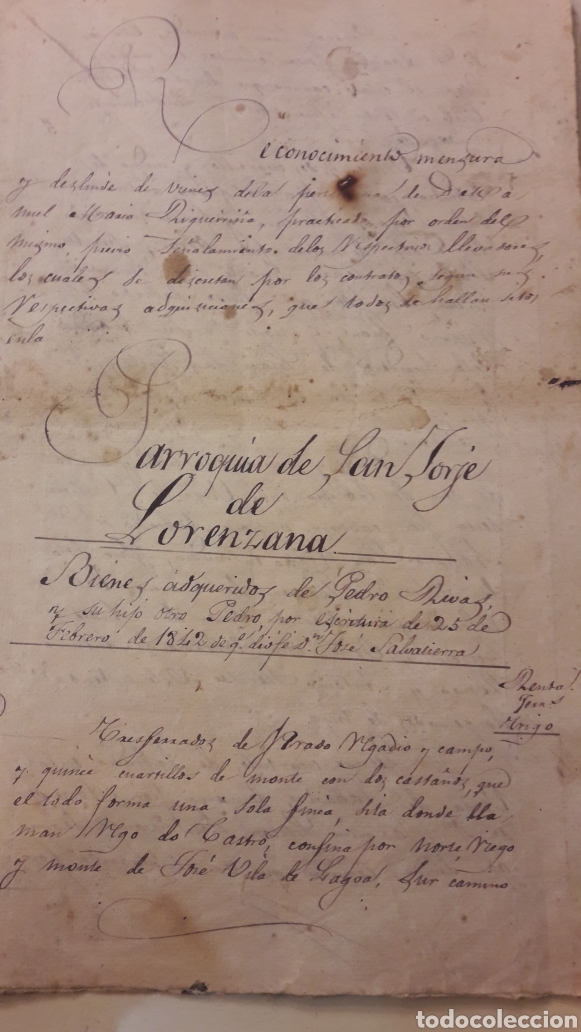 Reconocimiento mensura
y deslinde de vienes dela de D. Ma
nuel Maria practicado por orden del
mismo, previo señalamiento delos respectivos llevadores,
los cuales se descretan por los contratos, segun sus
respectivas adquisiciones, que todos se hallan sitos
enla
Parroquia de San Jorje
de
Lorenzana
Bienes adqueridos de Pedro Rivas,
y su hijo otro Pedro, por escritura de 25 de
Febrero de 1842 de q.e dió fé D.n José Salvatierra
Renta
Trigo
Tres ferrados de Prado regadio y campo,
y quince cuartillos de monte con dos castaños, que
el todo forma una sola finca, sita donde lla
man Rego do Castro, confina por norte, riego
y monte de José Vila de Lagoa, sur camino
todocoleccion
todocoleccion.net